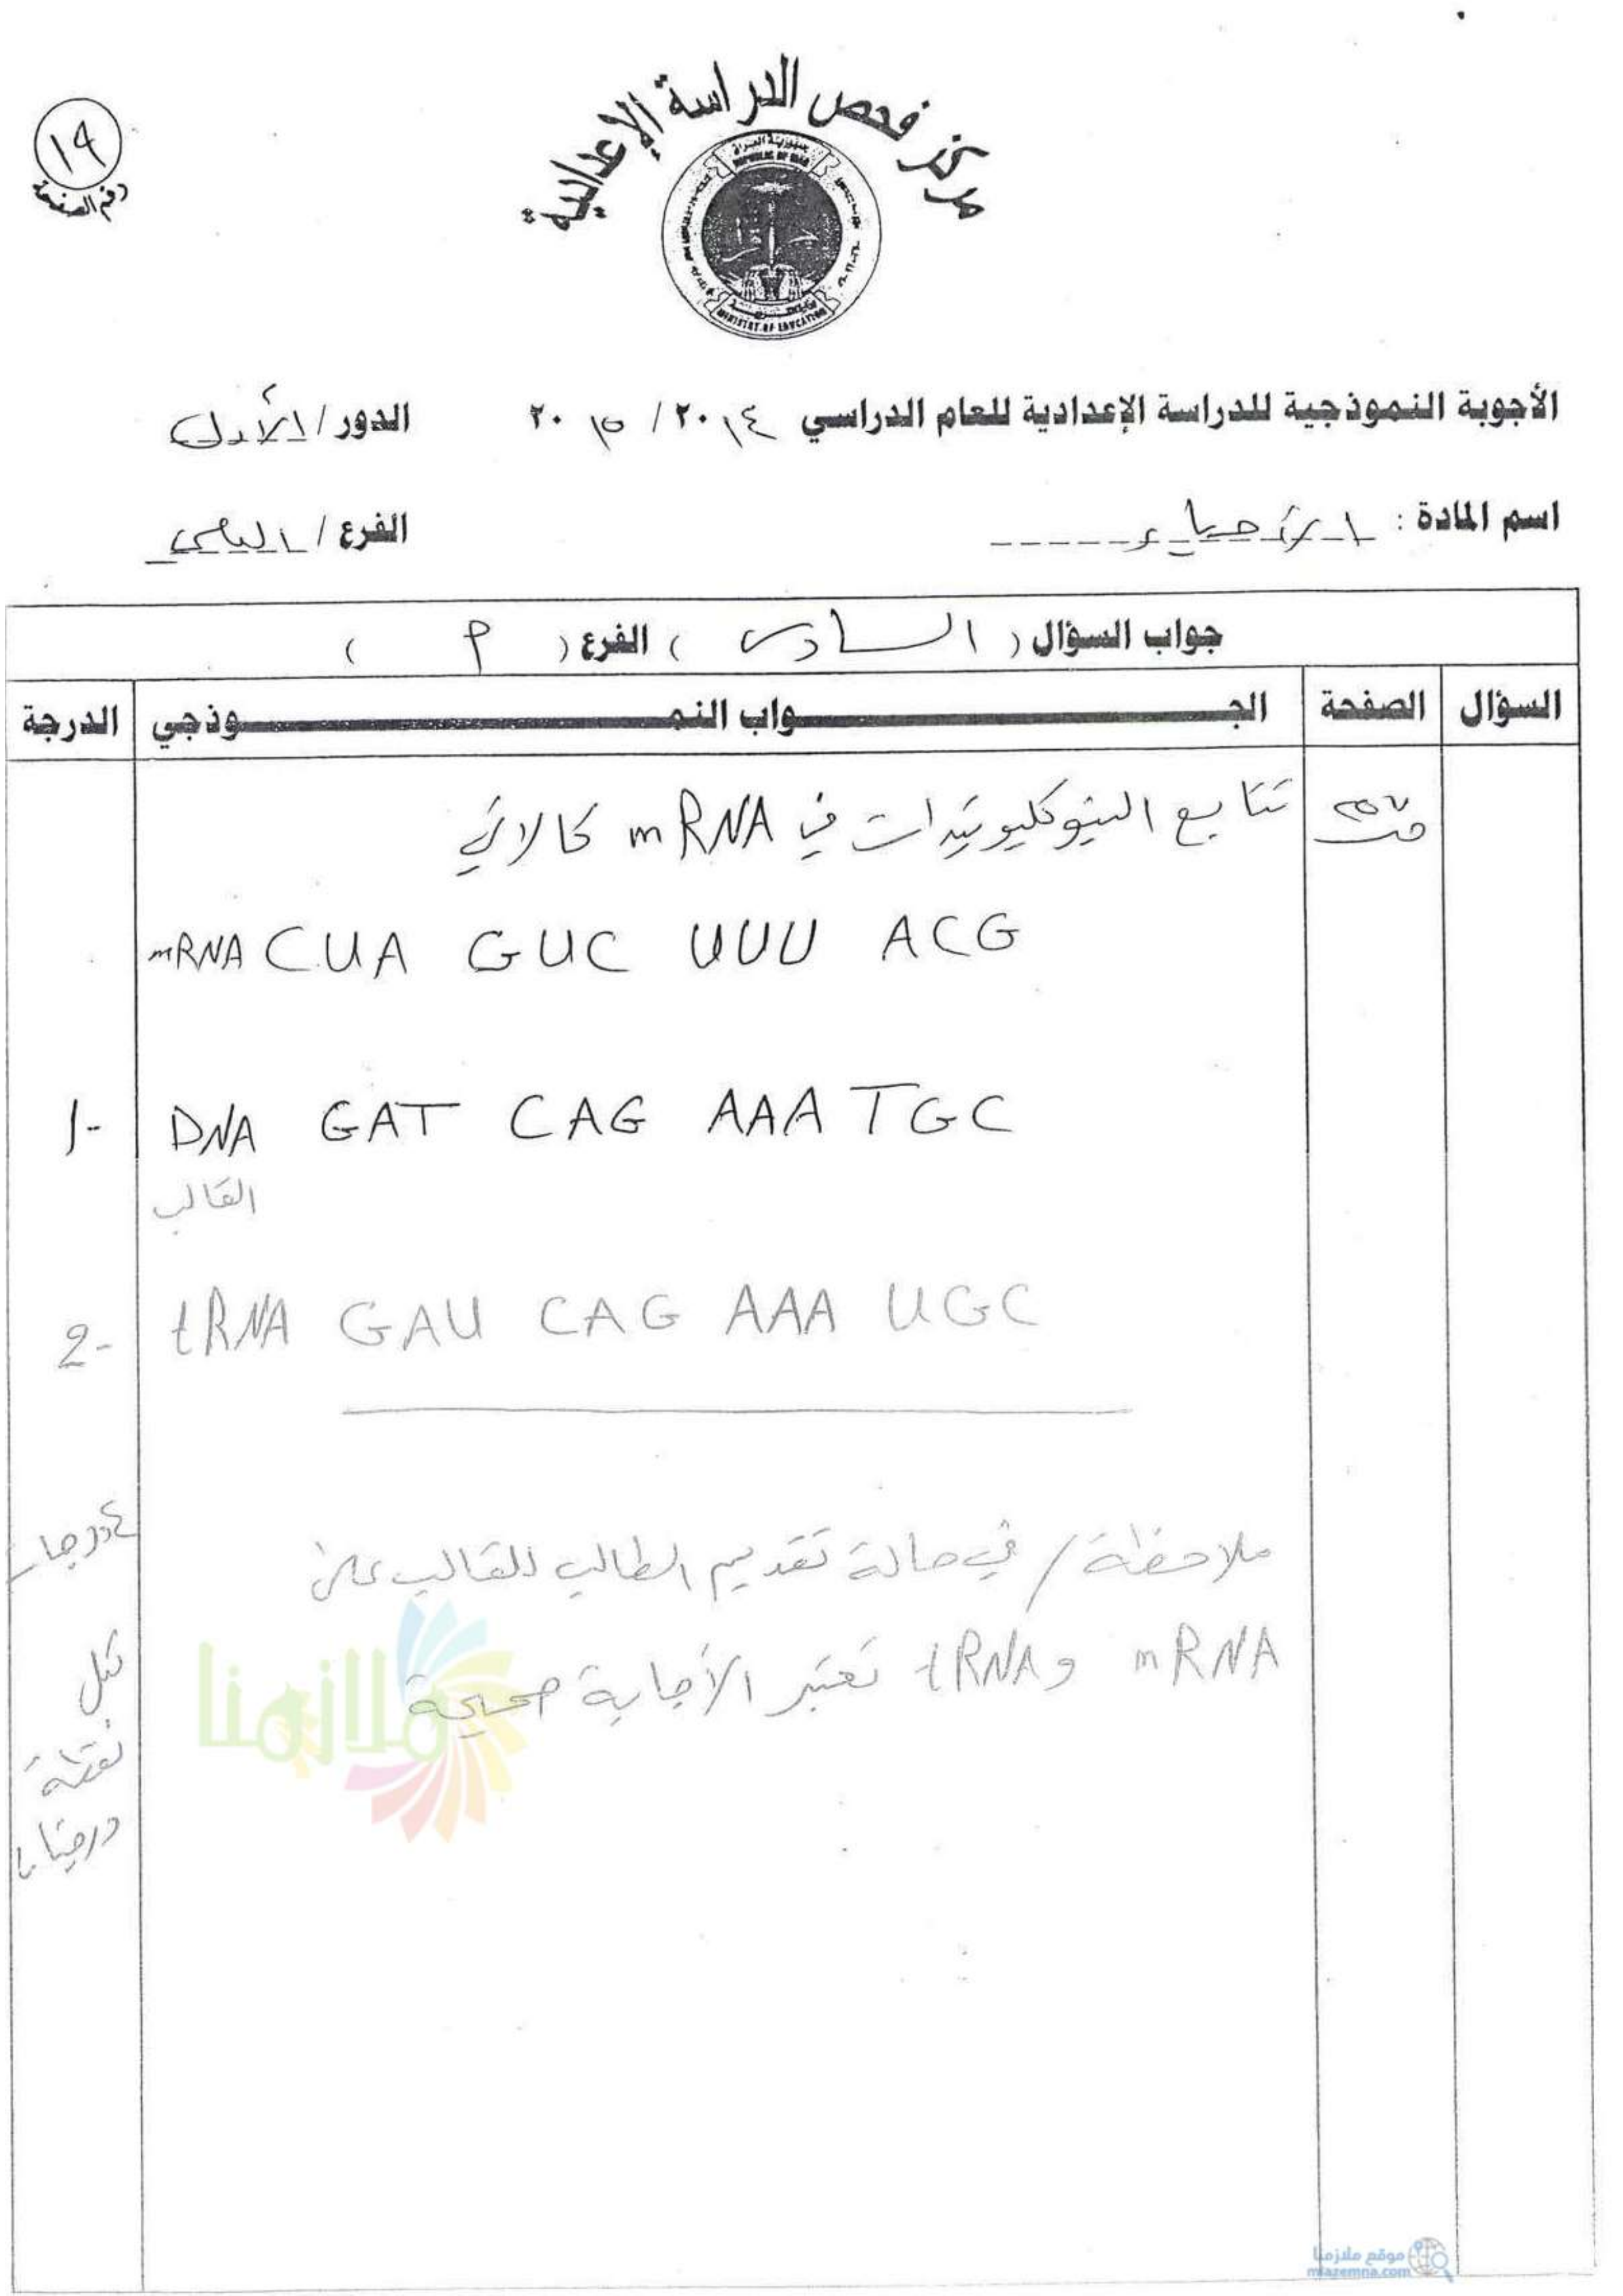 ١٩
رقم الصفحة
مركز فحص الدراسة الإعدادية
جمهورية العراق
REPUBLIC OF IRAQ
MINISTRY OF EDUCATION
الأجوبة النموذجية للدراسة الإعدادية للعام الدراسي ٢٠١٤ / ٢٠١٥ الدور / الأول
اسم المادة : الأحياء الفرع / العلمي
جواب السؤال ( السادس ) الفرع ( م )
السؤال الصفحة الجـــواب النمـــوذجي الدرجة
تتابع النيوكليوتيدات في mRNA كالاتي
mRNA CUA GUC UUU ACG
1- DNA GAT CAG AAA TGC
القالب
2- tRNA GAU CAG AAA UGC
ملاحظة / في حالة تقديم الطالب للقالب على
mRNA و tRNA تعتبر الأجابة صحيحة
٤ درجات
لكل
نقطة
درجتان
ملازمنا
موقع ملازمنا
mlazemna.com